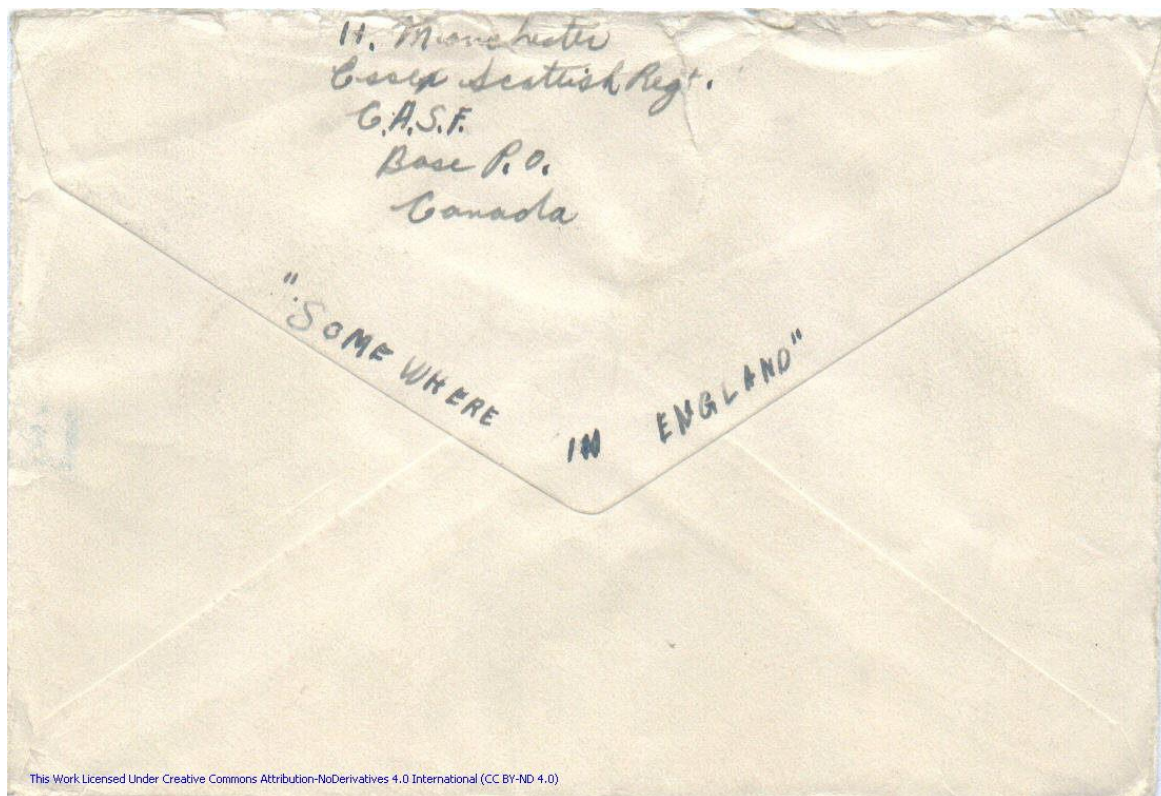 H. Manchester
Essex Scottish Regt.
C.A.S.F.
Base P.O.
Canada
"SOMEWHERE IN ENGLAND"
This Work Licensed Under Creative Commons Attribution-NoDerivatives 4.0 International (CC BY-ND 4.0)